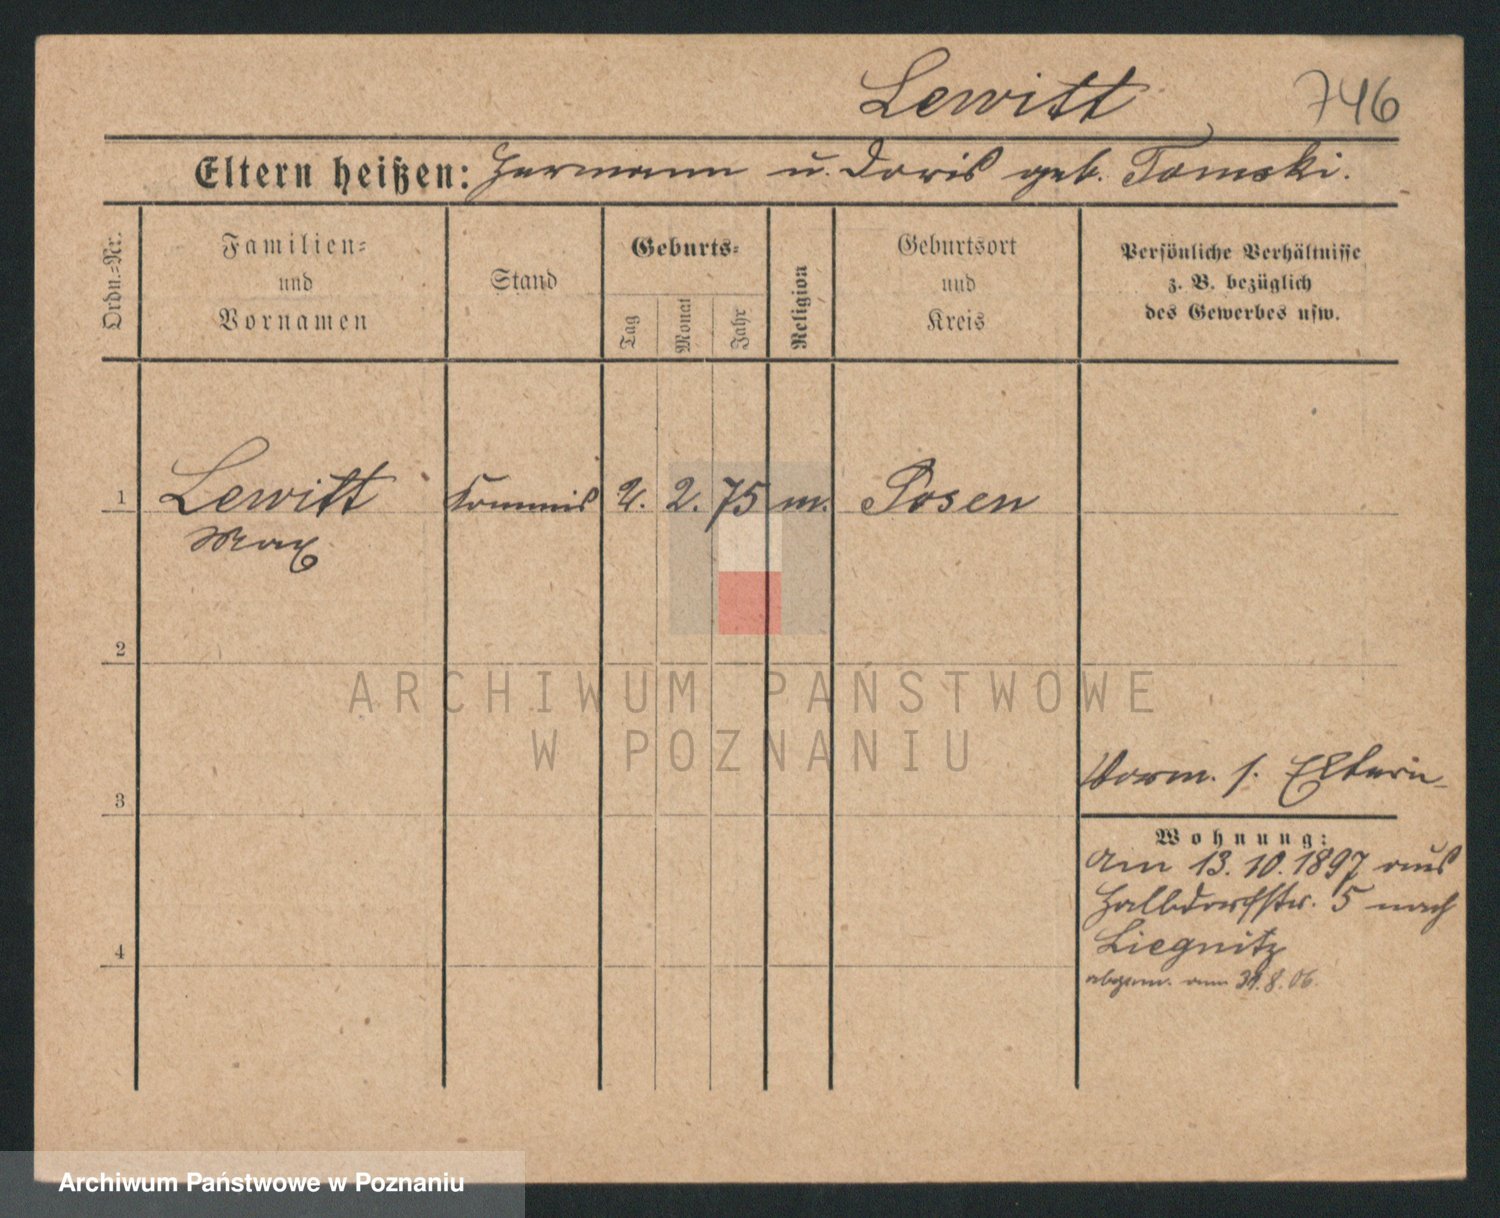 Lewitt 746
Eltern heißen: Hermann u. Doris geb. Tomski.
Ordn.=Nr.
Familien=
und
Vornamen
Stand
Geburts=
Tag
Monat
Jahr
Religion
Geburtsort
und
Kreis
Persönliche Verhältnisse
z. B. bezüglich
des Gewerbes usw.
1 Lewitt Commis 2. 75 m. Posen
Max
2
3
4
Vorm. s. Eltern
Wohnung:
Am 13.10.1897 aus
Halbdorfstr. 5 nach
Liegnitz
abgem. am 31.8.06.
ARCHIWUM PAŃSTWOWE
W POZNANIU
Archiwum Państwowe w Poznaniu